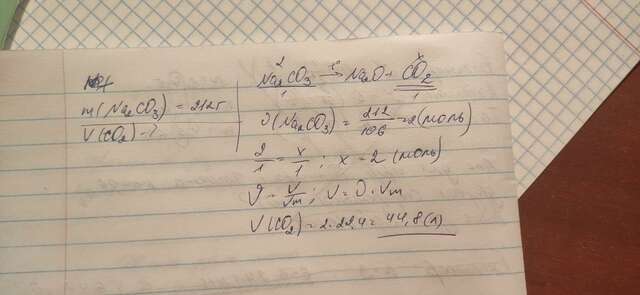 m(Na₂CO₃) = 212г
V(CO₂) - ?
2 t x
Na₂CO₃ → Na₂O + CO₂
1 1
ν(Na₂CO₃) = 212/106 = 2 (моль)
2/1 = x/1 ; x = 2 (моль)
ν = V/Vm ; V = ν · Vm
V(CO₂) = 2 · 22,4 = 44,8 (л)